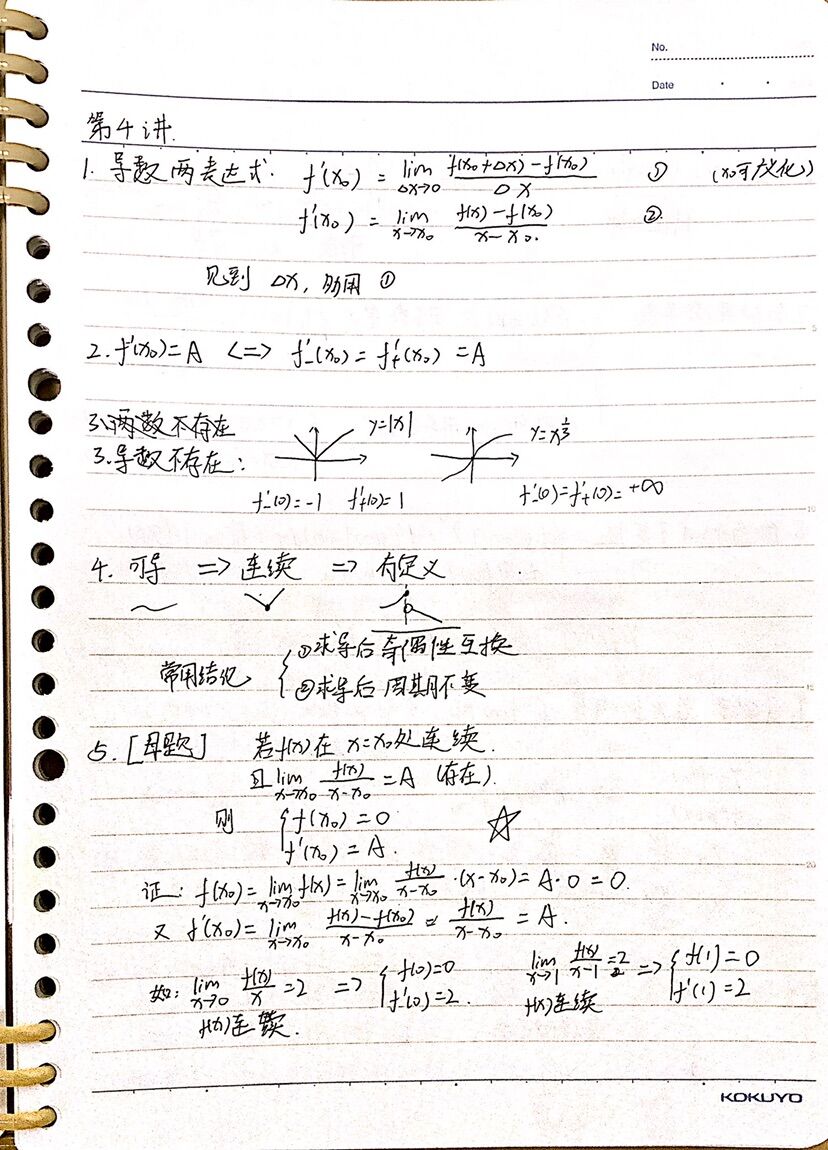 No.
Date
第4讲.
1. 导数两表达式. f'(x₀) = lim_{Δx→0} \frac{f(x₀+Δx)-f(x₀)}{Δx} ① (x₀可广义化)
f'(x₀) = lim_{x→x₀} \frac{f(x)-f(x₀)}{x-x₀.} ②.
见到 Δx, 多用 ①
2. f'(x₀)=A <=> f'₋(x₀) = f'₊(x₀) = A
3.两数不存在
3.导数不存在: y=|x| y=x^{\frac{1}{3}}
f'₋(0)=-1 f'₊(0)=1 f'₋(0)=f'₊(0)=+∞
4. 可导 => 连续 => 有定义
常用结论 { ①求导后奇偶性互换
②求导后周期不变
5. [母题] 若f(x)在 x=x₀处连续.
且 lim_{x→x₀} \frac{f(x)}{x-x₀} = A (存在).
则 { f(x₀) = 0
f'(x₀) = A.
证: f(x₀) = lim_{x→x₀} f(x) = lim_{x→x₀} \frac{f(x)}{x-x₀} · (x-x₀) = A·0 = 0.
又 f'(x₀) = lim_{x→x₀} \frac{f(x)-f(x₀)}{x-x₀} = \frac{f(x)}{x-x₀} = A.
如: lim_{x→0} \frac{f(x)}{x} = 2 => { f(0)=0 f'(0)=2. lim_{x→1} \frac{f(x)}{x-1} = 2 => { f(1)=0 f'(1)=2
f(x)连续. f(x)连续
KOKUYO